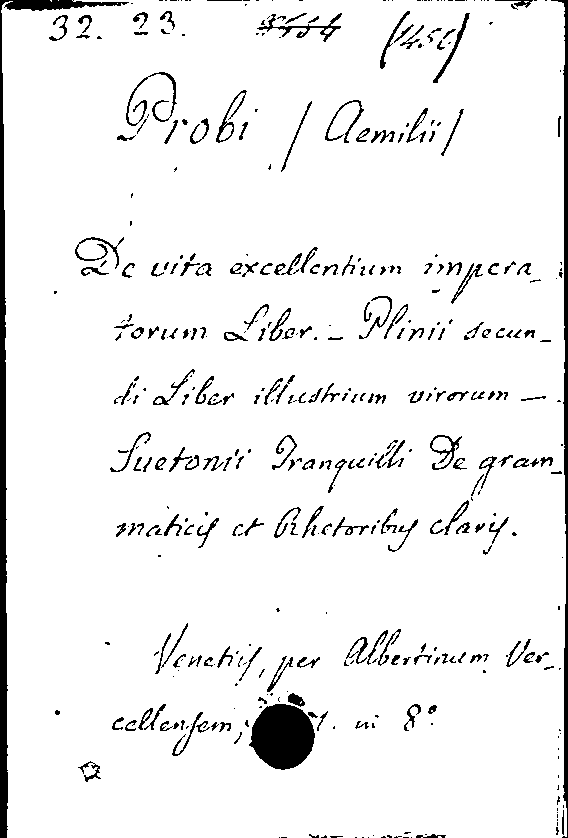 32. 23. (1450)
Probi / Aemilii /
De vita excellentium impera_
torum Liber. _ Plinii secun_
di Liber illustrium virorum —
Suetonii Tranquilli De gram_
maticis et Rhetoribus claris.
Venetiis, per Albertinum Ver_
cellensem, 1. in 8°